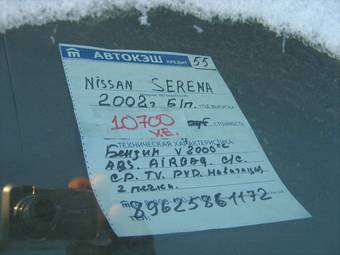 АВТОКЭШ КРЕДИТ 55
Nissan SERENA
2002г Б/п. ГОД ВЫПУСКА
10700 у.е. СТОИМОСТЬ
ТЕХНИЧЕСКАЯ ХАРАКТЕРИСТИКА:
Бензин V 2000
ABS. AIRBAG. С/С.
CD. TV. DVD. Навигация
2 печки.
89625861172